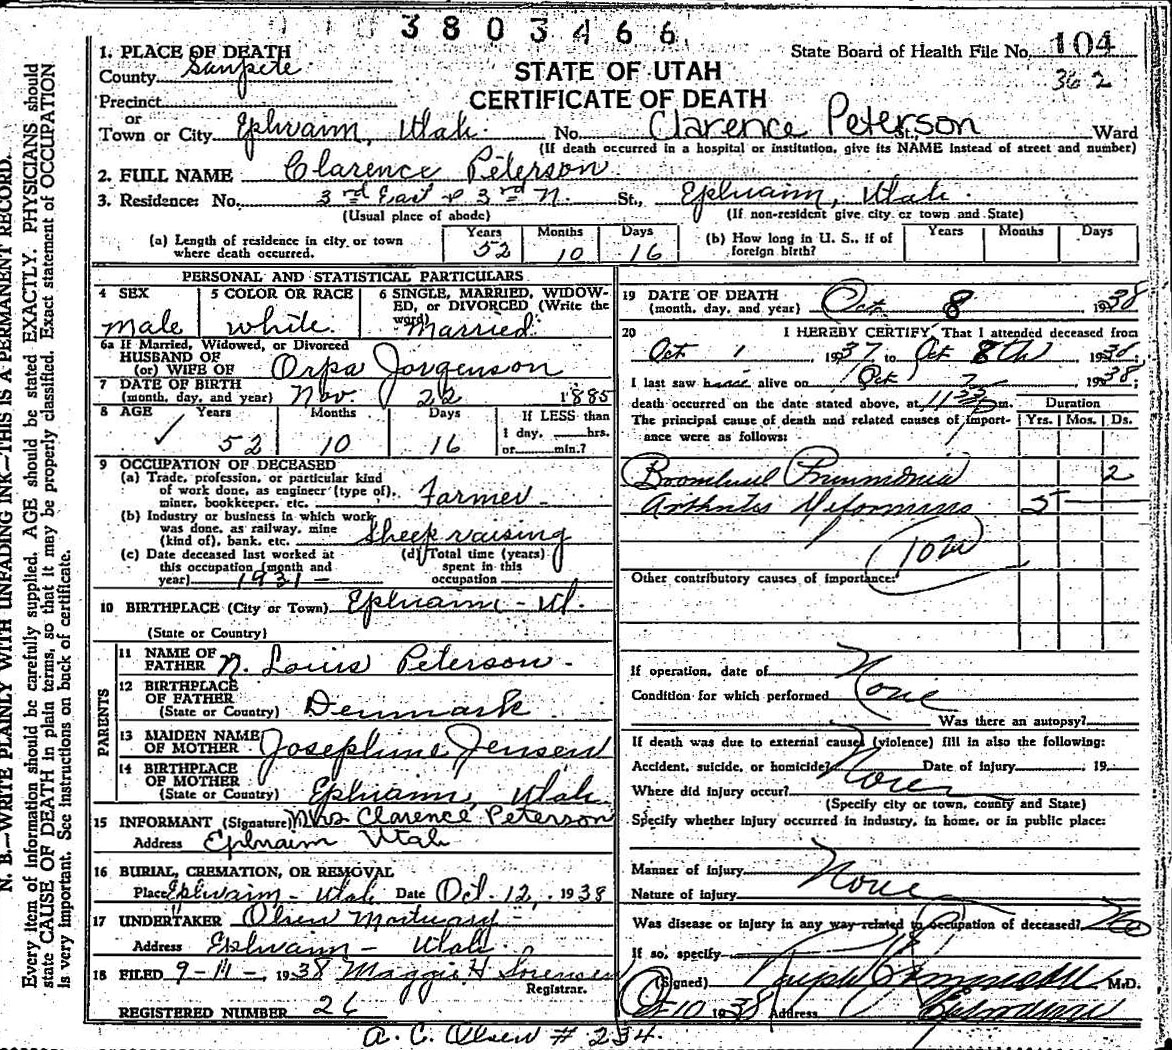 3803466
State Board of Health File No. 104
362
STATE OF UTAH
CERTIFICATE OF DEATH
1. PLACE OF DEATH
County Sanpete
Precinct
or
Town or City Ephraim, Utah. No. Clarence Peterson St., Ward
(If death occurred in a hospital or institution, give its NAME instead of street and number)
2. FULL NAME Clarence Peterson
3. Residence: No. 3rd East & 3rd N. St., Ephraim, Utah.
(Usual place of abode) (If non-resident give city or town and State)
(a) Length of residence in city or town where death occurred. Years 52 Months 10 Days 16
(b) How long in U. S., if of foreign birth? Years Months Days
PERSONAL AND STATISTICAL PARTICULARS
4 SEX Male
5 COLOR OR RACE White.
6 SINGLE, MARRIED, WIDOWED, OR DIVORCED (Write the word) Married.
6a If Married, Widowed, or Divorced
HUSBAND OF
(or) WIFE OF Orpa Jorgenson
7 DATE OF BIRTH
(month, day, and year) Nov. 22 1885
8 AGE Years 52 Months 10 Days 16 If LESS than 1 day, hrs. or min.?
9 OCCUPATION OF DECEASED
(a) Trade, profession, or particular kind of work done, as engineer (type of), miner, bookkeeper, etc. Farmer
(b) Industry or business in which work was done, as railway, mine (kind of), bank, etc. Sheep raising
(c) Date deceased last worked at this occupation (month and year) 1931 -
(d) Total time (years) spent in this occupation
10 BIRTHPLACE (City or Town) Ephraim - Ut.
(State or Country)
PARENTS
11 NAME OF FATHER N. Louis Peterson -
12 BIRTHPLACE OF FATHER (State or Country) Denmark
13 MAIDEN NAME OF MOTHER Josephine Jensen
14 BIRTHPLACE OF MOTHER (State or Country) Ephraim, Utah
15 INFORMANT (Signature) Mrs Clarence Peterson
Address Ephraim Utah
16 BURIAL, CREMATION, OR REMOVAL
Place Ephraim - Utah Date Oct. 12, 1938
17 UNDERTAKER Olsen Mortuary -
Address Ephraim - Utah.
18 FILED 9-14-, 1938 Maggie H Sorensen
Registrar.
REGISTERED NUMBER 26
19 DATE OF DEATH
(month, day, and year) Oct. 8 1938
20 I HEREBY CERTIFY, That I attended deceased from
Oct 1 1937, to Oct 8th, 1938,
I last saw alive on Oct 7 1938;
death occurred on the date stated above, at 11 30 p m.
The principal cause of death and related causes of importance were as follows:
Duration
Yrs. Mos. Ds.
Bronchial Pneumonia 2
Arthritis Deformans 5
Other contributory causes of importance:
If operation, date of
Condition for which performed None
Was there an autopsy?
If death was due to external causes (violence) fill in also the following:
Accident, suicide, or homicide? None Date of injury , 19
Where did injury occur?
(Specify city or town, county and State)
Specify whether injury occurred in industry, in home, or in public place:
Manner of injury None
Nature of injury
Was disease or injury in any way related to occupation of deceased? No
If so, specify
(Signed) M.D.
Oct 10 1938 Address Ephraim
A. C. Olsen # 234.
N. B.—WRITE PLAINLY WITH UNFADING INK—THIS IS A PERMANENT RECORD.
Every item of information should be carefully supplied. AGE should be stated EXACTLY. PHYSICIANS should
state CAUSE OF DEATH in plain terms, so that it may be properly classified. Exact statement of OCCUPATION
is very important. See instructions on back of certificate.